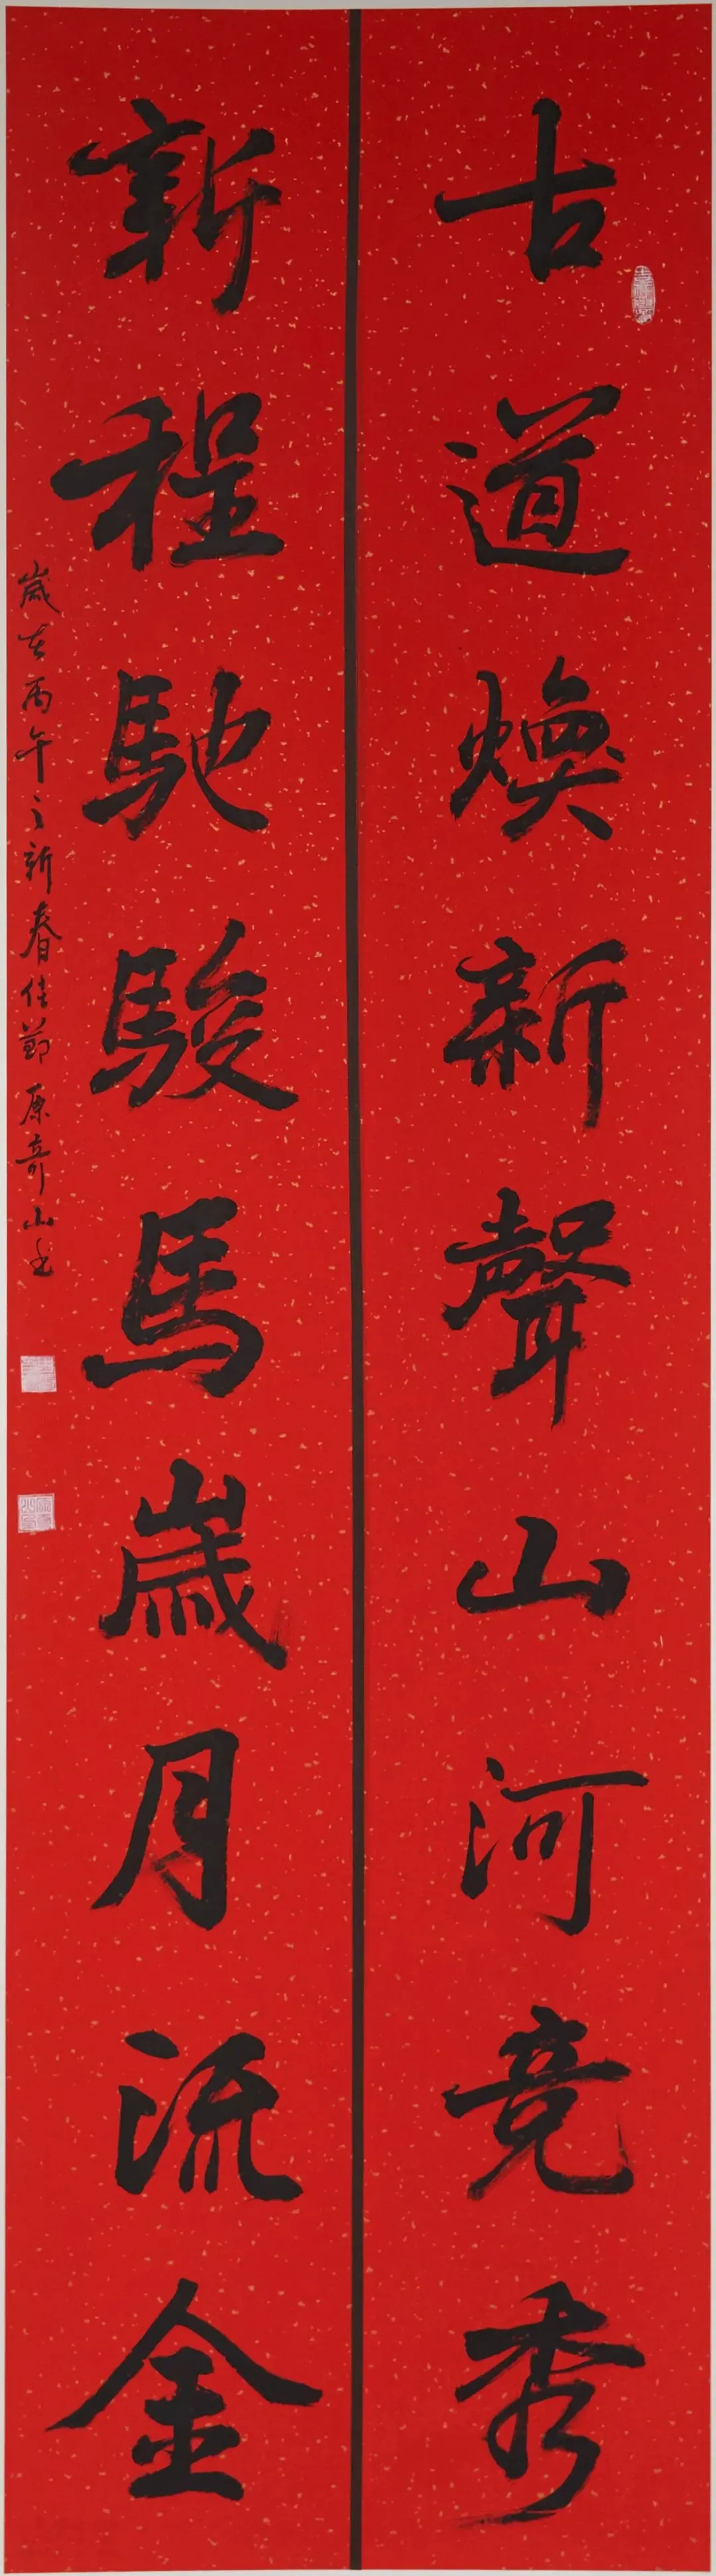 古道煥新聲山河竞秀
新程馳駿馬歲月流金
歲在丙午之新春佳節原奇山书